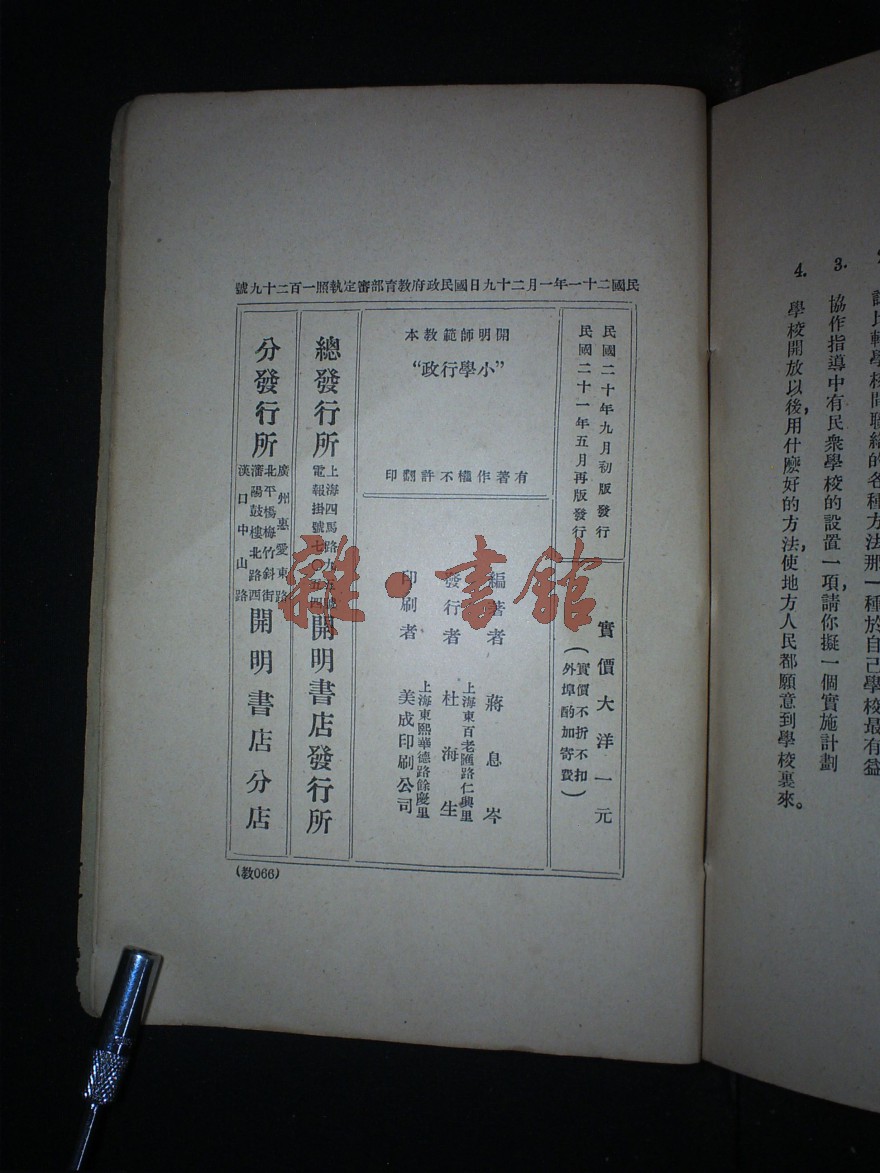 民國二十一年一月二十九日國民政府教育部審定執照一百二十九號
民國二十年九月初版發行
民國二十一年五月再版發行
實價大洋一元
(實價不折不扣
外埠酌加寄費)
開明師範教本
“小學行政”
有著作權不許翻印
編著者 蔣息岑
發行者 杜海生
上海東百老匯路仁興里
印刷者 美成印刷公司
上海東熙華德路餘慶里
總發行所
上海四馬路九五號
電報掛號七〇五四
開明書店發行所
分發行所
廣州惠愛東路
北平楊梅竹斜街
瀋陽鼓樓北路西
漢口中山路
開明書店分店
(教066)
雜·書館
協作指導中有民衆學校的設置一項,請你擬一個實施計劃
3.
4.
學校開放以後,用什麽好的方法,使地方人民都願意到學校裏來。